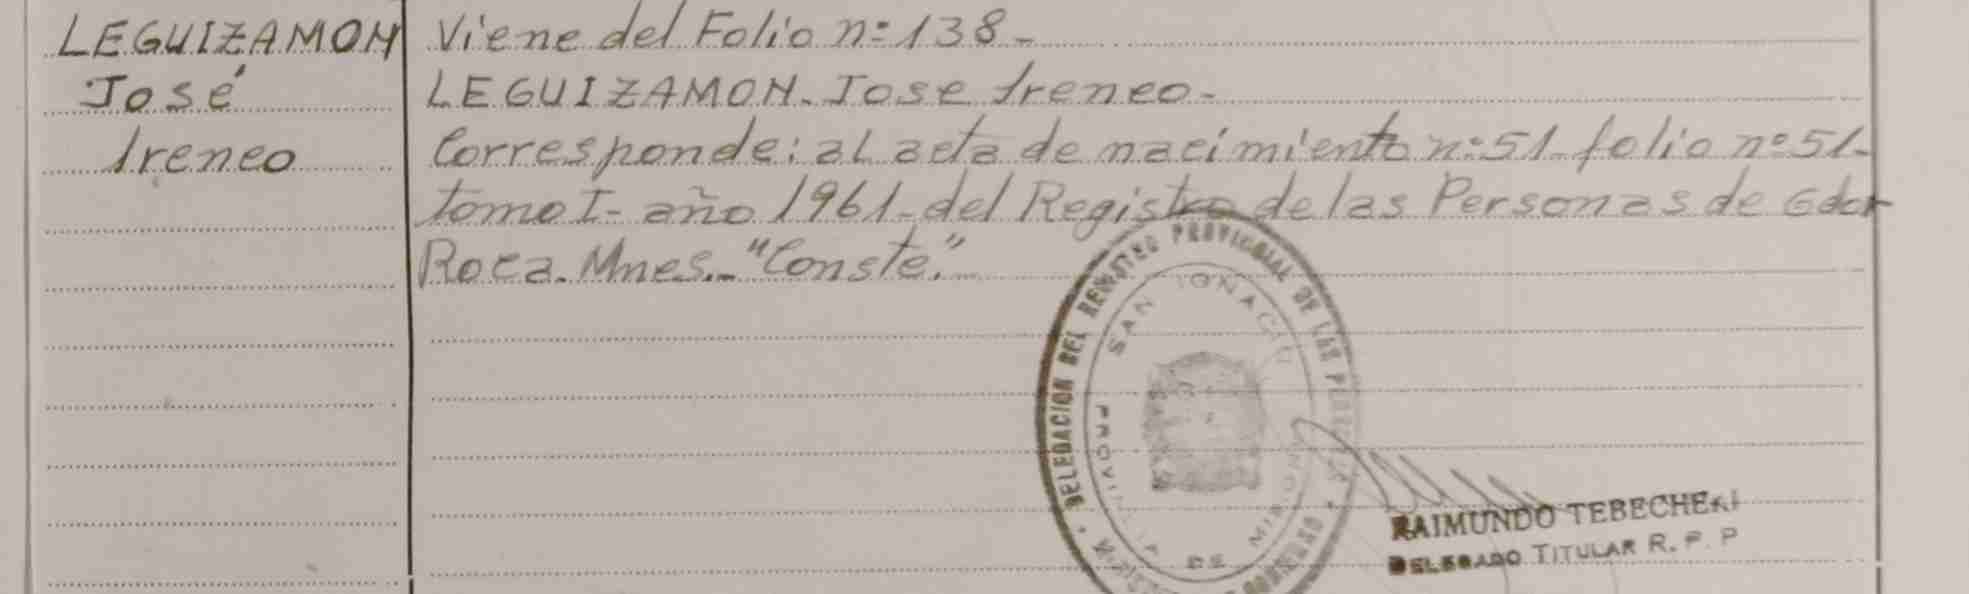 LEGUIZAMON
José
Ireneo
Viene del Folio nº 138-
LEGUIZAMON. Jose Ireneo-
Corresponde: al acta de nacimiento nº 51- folio nº 51-
tomo I- año 1961- del Registro de las Personas de Gdor
Roca. Mnes.- "Conste."
DELEGACION DEL REGISTRO PROVINCIAL DE LAS PERSONAS
SAN IGNACIO
PROVINCIA DE MISIONES
GOBIERNO
RAIMUNDO TEBECHERI
DELEGADO TITULAR R. P. P